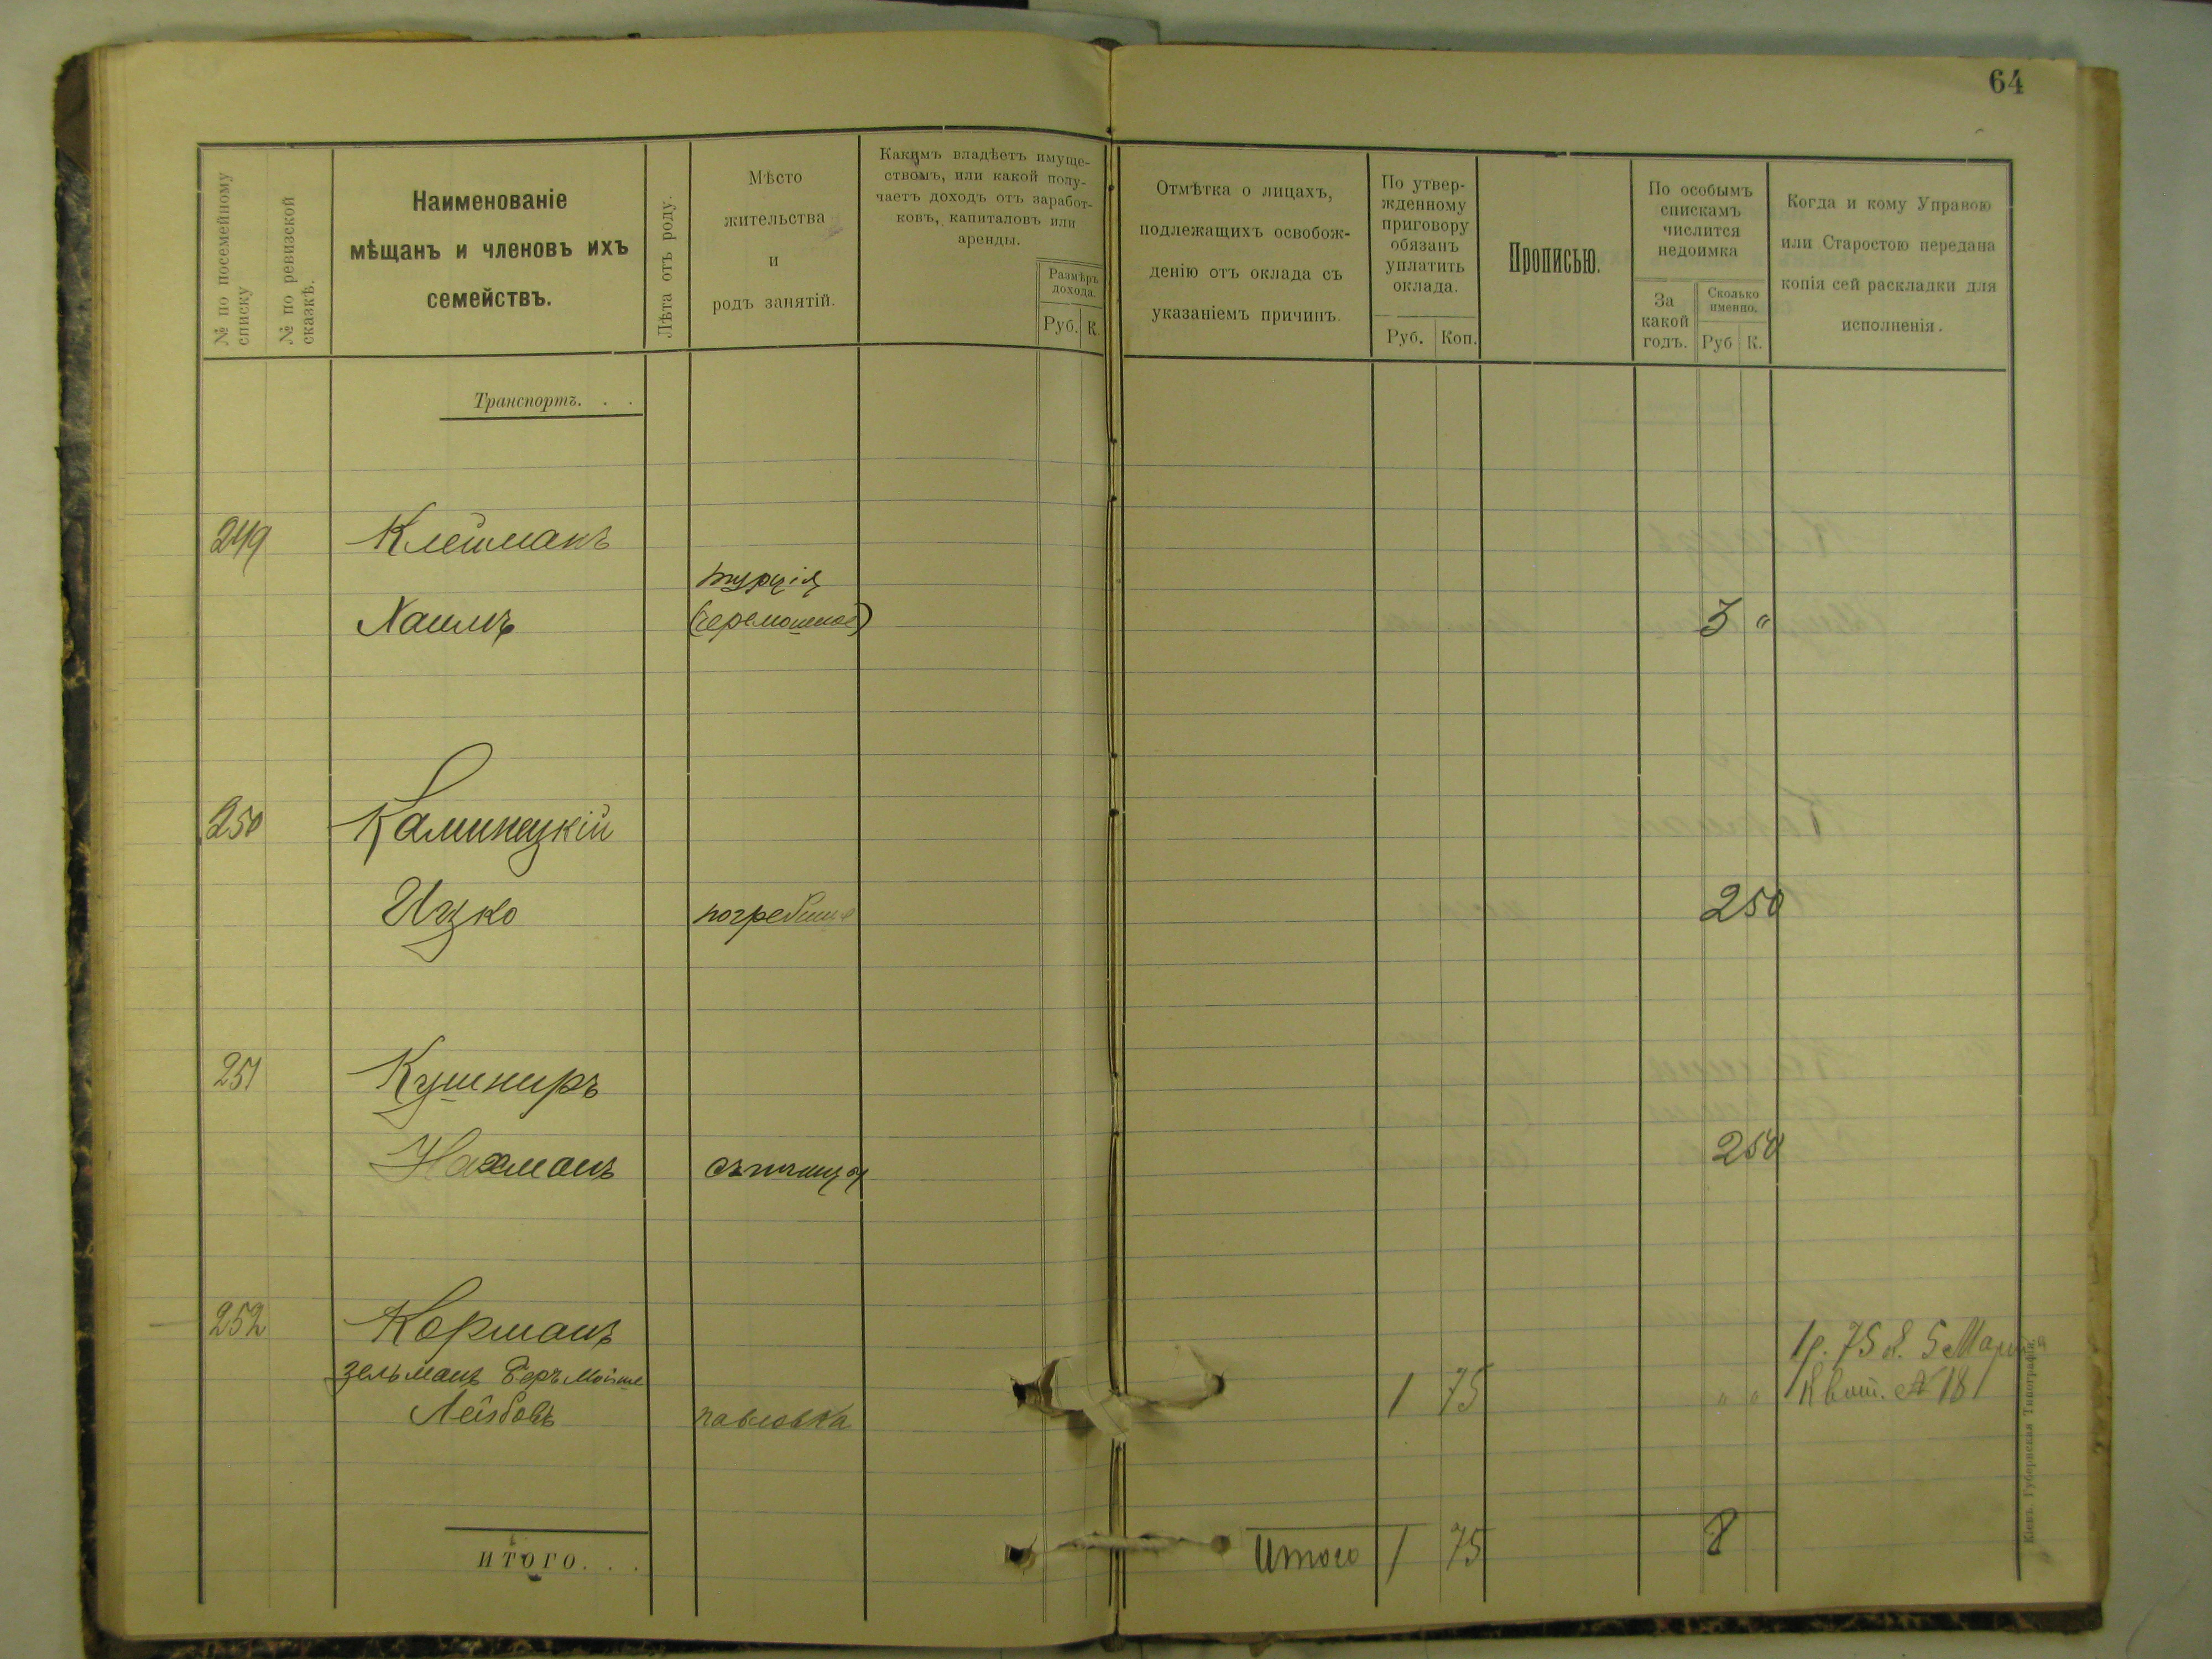 64
№ по посемейному
списку
№ по ревизской
сказкѣ.
Наименованіе
мѣщанъ и членовъ ихъ
семействъ.
Лѣта отъ роду.
Мѣсто
жительства
и
родъ занятій.
Какимъ владѣетъ имуще-
ствомъ, или какой полу-
чаетъ доходъ отъ заработ-
ковъ, капиталовъ или
аренды.
Размѣръ
дохода.
Руб. К.
Отмѣтка о лицахъ,
подлежащихъ освобож-
денію отъ оклада съ
указаніемъ причинъ.
По утвер-
жденному
приговору
обязанъ
уплатить
оклада.
Руб. Коп.
Прописью.
По особымъ
спискамъ
числится
недоимка
За
какой
годъ.
Сколько
именно.
Руб К.
Когда и кому Управою
или Старостою передана
копія сей раскладки для
исполненія.
Транспортъ. . .
249 Клейманъ
турція
Хаимъ 3 "
250 Каминецкій
Ицко погребище 250
251 Кушниръ
Нахманъ 250
252 Корманъ
зельманъ Беръ Мойше
Лейбовъ павловка 1 75 " "
1р. 75 к. 5 Мар
Квит. № 181
ИТОГО. . .
Итого 1 75 8
Кіевъ. Губернская Типографія.